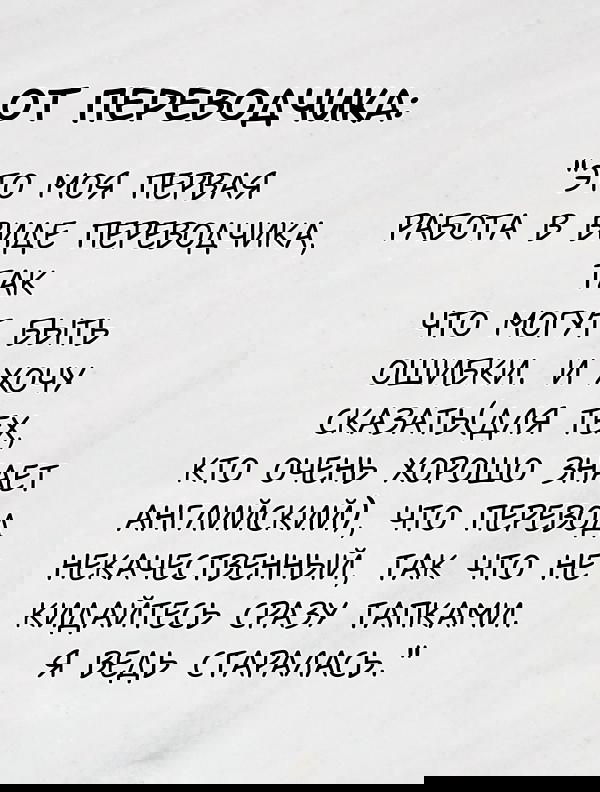 ОТ ПЕРЕВОДЧИКА:
"ЭТО МОЯ ПЕРВАЯ
РАБОТА В ВИДЕ ПЕРЕВОДЧИКА,
ТАК
ЧТО МОГУТ БЫТЬ
ОШИБКИ. И ХОЧУ
СКАЗАТЬ(ДЛЯ ТЕХ,
КТО ОЧЕНЬ ХОРОШО ЗНАЕТ
АНГЛИЙСКИЙ), ЧТО ПЕРЕВОД
НЕКАЧЕСТВЕННЫЙ, ТАК ЧТО НЕ
КИДАЙТЕСЬ СРАЗУ ТАПКАМИ.
Я ВЕДЬ СТАРАЛАСЬ."